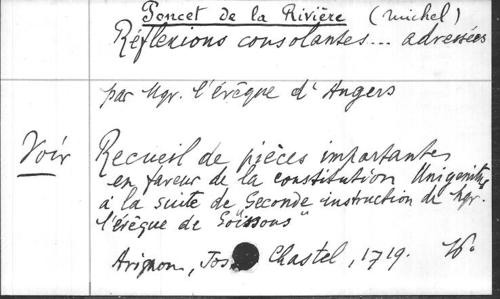 Poncet de la Rivière (Michel)
Réflexions consolantes... adressées
par Mgr. l'évêque d'Angers
Voir Recueil de pièces importantes
en faveur de la constitution Unigenitus
à la suite de Seconde instruction de Mgr.
l'évêque de Soissons"
Avignon, Jos Chastel, 1719. 16°